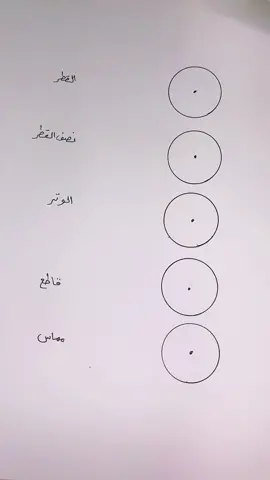 القطر
نصف القطر
الوتر
قاطع
مماس